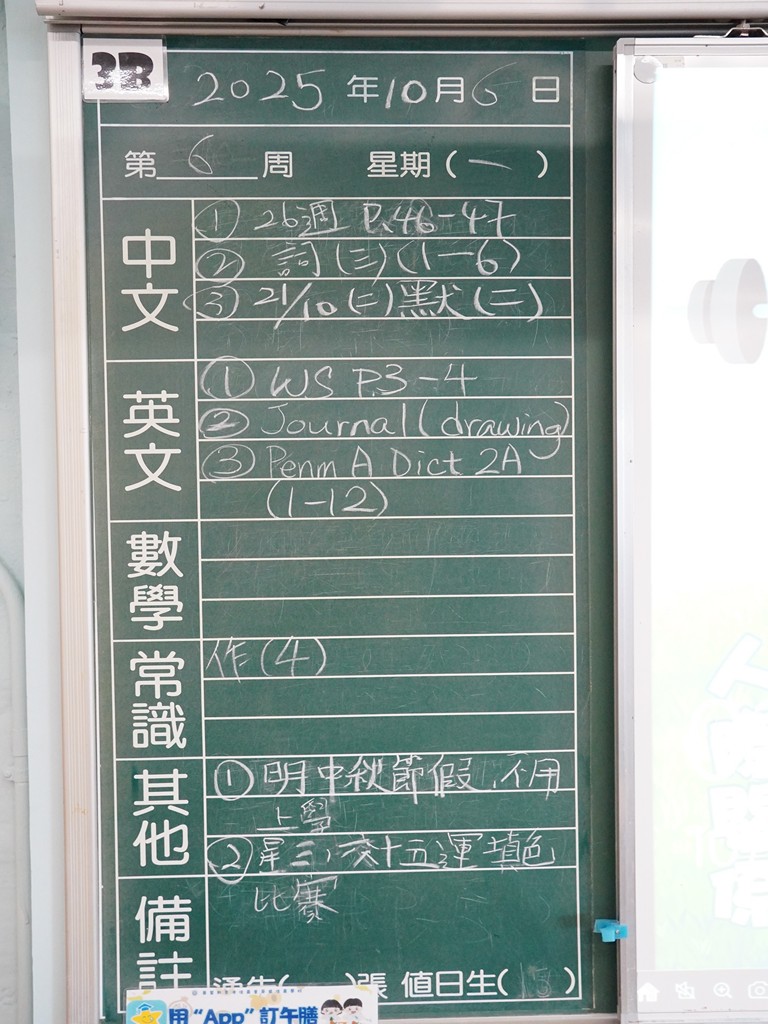 3B
2025 年 10 月 6 日
第 6 周 星期 (一)
中文
① 26週 P.46-47
② 詞(三)(1-6)
③ 21/10(二)默(二)
英文
① WS P.3-4
② Journal (drawing)
③ Penm A Dict 2A
(1-12)
數學
常識
作(4)
其他
① 明中秋節假,不用
上學
② 星三,交十五運填色
比賽
備註
通告( )張 值日生( )
用 "App" 訂午膳